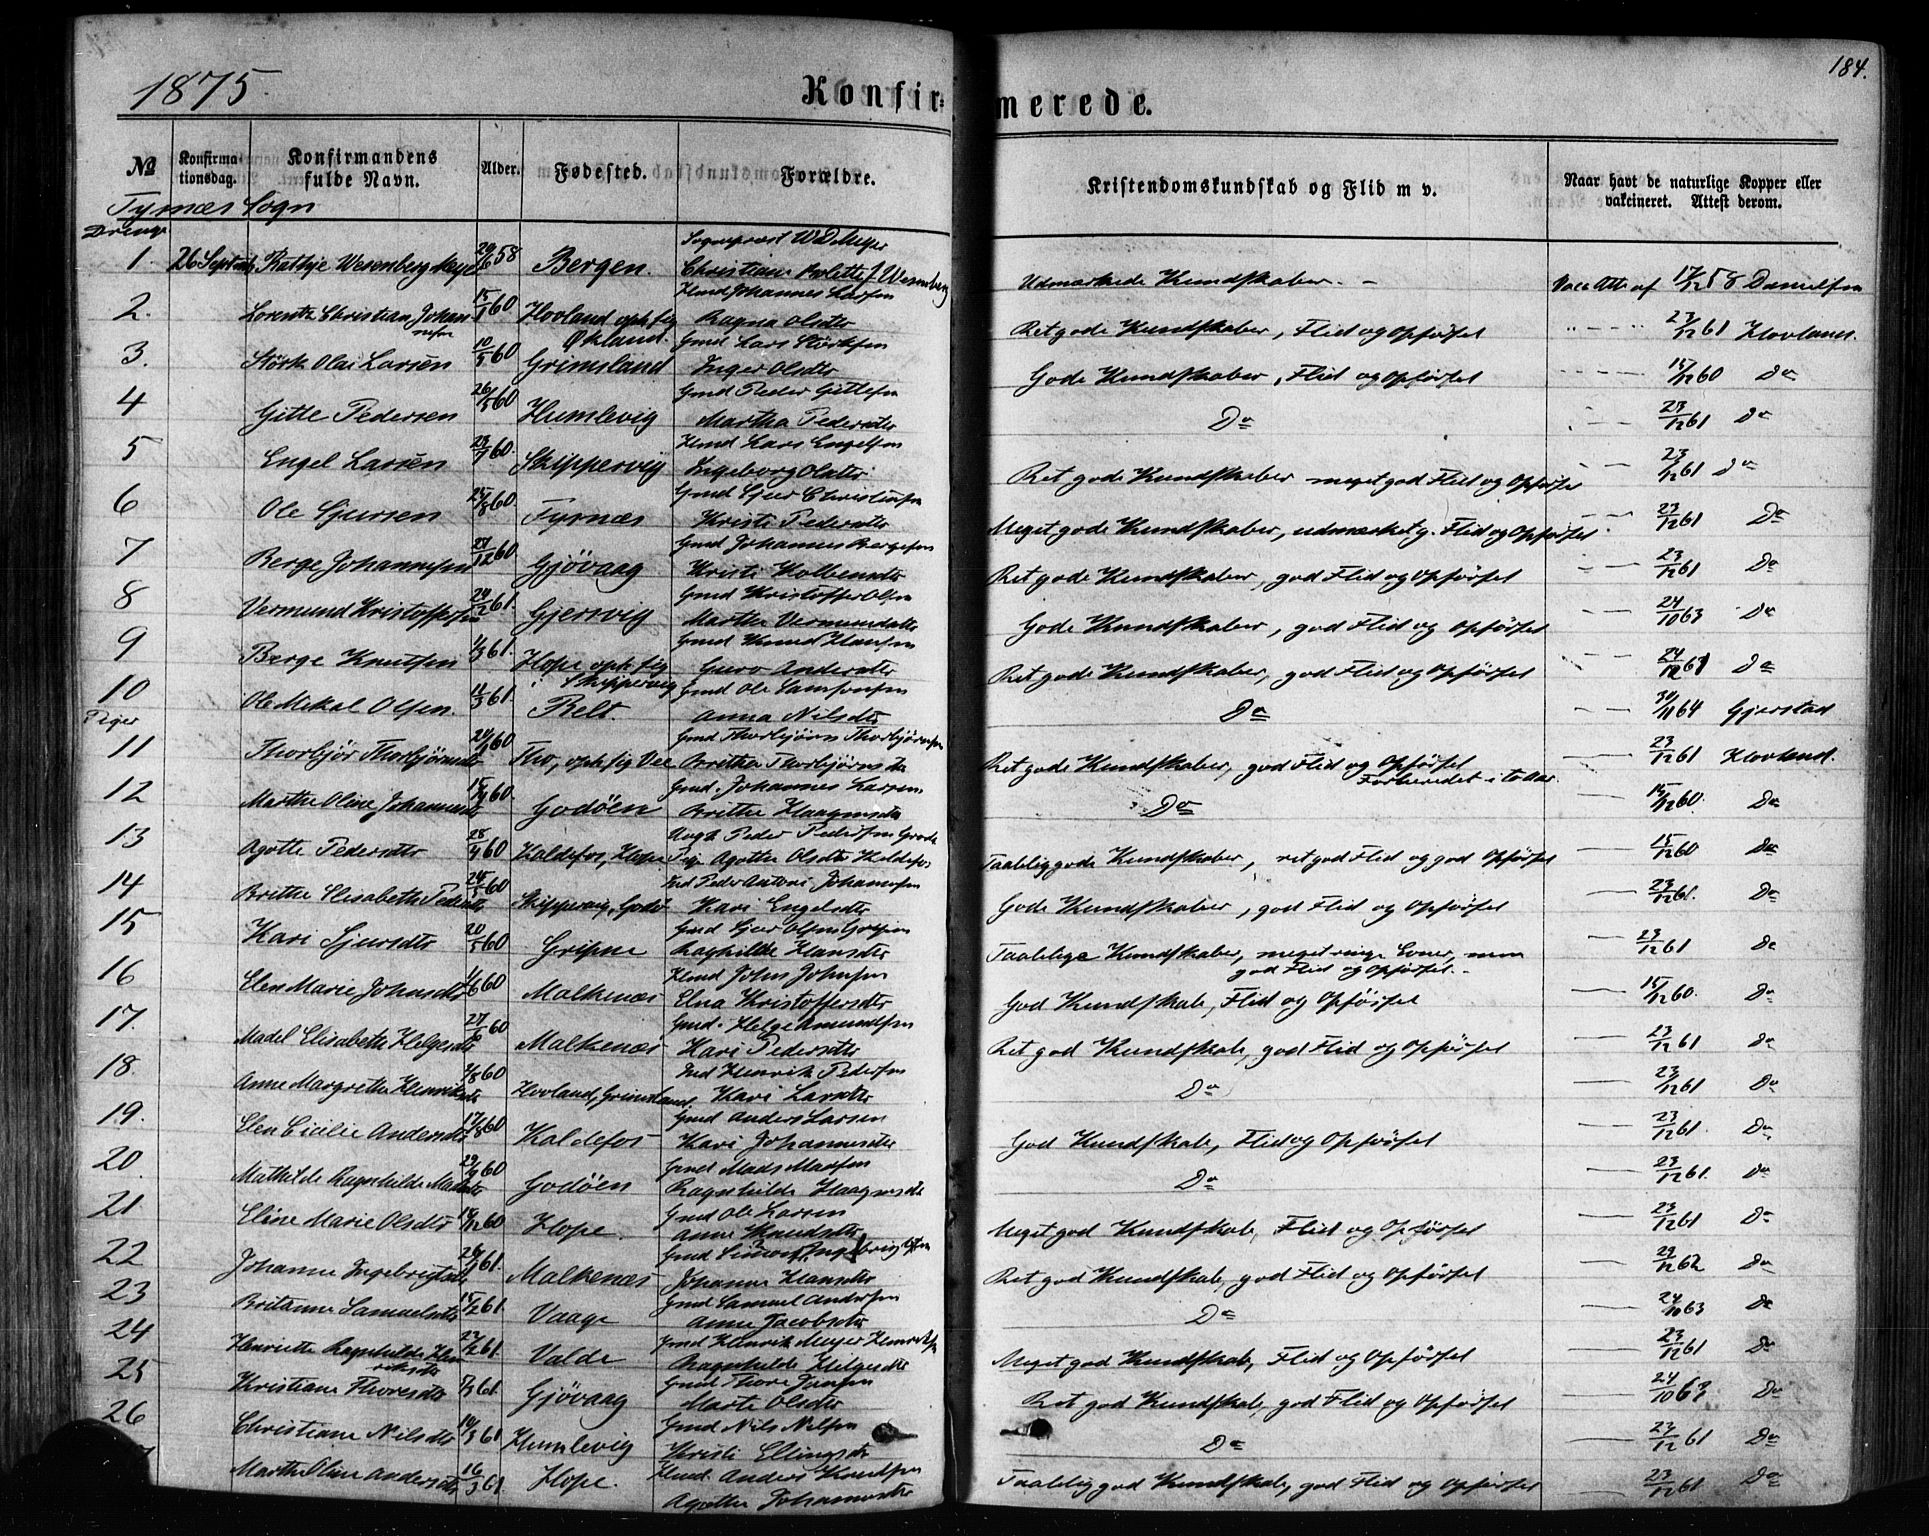 184.
1875.
Konfirmerede.
№
Konfirmationsdag.
Konfirmandens fulde Navn.
Alder.
Fødested.
Forældre.
Kristendomskundskab og Flid m v.
Naar havt de naturlige Kopper eller vakcineret. Attest derom.
Tysnæs Sogn
Drenge
Sogneprest W D Meyer
1. 26 Septmb Wesenberg Meyer 58 Bergen. Christiane Wesenberg Udmærkede Kundskaber. Vacc Att af 17/12 58 Danielsen
Hmd Johannes Larsen
2. Lorentz Christian Johannesen 15/1 60 Hovland oph. sig Økland. Ragna Olsdtr Ret gode Kundskaber, Flid og Opførsel 23/12 61 Hovland.
Gmd Lars Størksen
3. Størk Olai Larsen 10/5 60 Grimsland Inger Olsdtr Gode Kundskaber, Flid og Opførsel 15/12 60 Do
Gmd Peder Gittlesen
4 Gitle Pedersen 26/5 60 Humlevig Martha Pedersdtr Do 23/12 61 Do
Hmd Lars Engelsen
5 Engel Larsen 23/7 60. Skippervig Ingeborg Olsdtr Ret gode Kundskaber meget god Flid og Opførsel 23/12 61 Do
Gmd Sjur Christensen
6 Ole Sjursen 25/8 60 Tysnæs Kristi Pedersdtr Meget gode Kundskaber, udmærket g. Flid og Opførsel. 23/12 61 Do
Gmd Johannes Bergesen
7 Berge Johannesen 27/12 60. Gjøvaag Kristi Kolbensdtr Ret gode Kundskaber, god Flid og Opførsel 23/12 61 Do
Gmd Kristoffer Olsen
8 Vermund Kristoffersen 24/2 61. Gjersvig Martha Vermundsdtr Gode Kundskaber, god Flid og Opførsel 24/10 63 Do
Gmd Knud Hansen
9 Berge Knutsen 1/3 61. Hope oph. sig i Skippervig Guro Andersdtr Ret gode Kundskaber, god Flid og Opførsel Do
Gmd Ole Samsonsen
10 Ole Mikal Olsen. 11/3 61. Belt. Anna Nilsdtr Do 30/11 64 Gjerstad
Piger
Gmd Thorbjørn Thorbjørnsen
11 Thorbjør Thorbjørnsdtr 60 Tho, oph. sig Vee Britha Thorbjørnsdtr Ret gode Kundskaber, god Flid og Opførsel 23/12 61 Hovland.
Gmd. Johannes Larsen
12 Martha Oline Johannesdtr 15/4 60. Godøen Britha Haagensdtr Do 15/12 60. Do
Ungk Peder Pedersen
13 Agathe Pedersdtr 28/4 60 Kaldefos, Hope Pige Agatha Olsdtr Kaldefos Taalelig gode Kundskaber, ret god Flid og god Opførsel 15/12 60 Do
Ind Peder Antoni Johannesen
14 Brithe Elisabeth Pedersdtr 24/5 60 Skippervig, Godø Kari Engelsdtr Gode Kundskaber, god Flid og Opførsel 23/12 61. Do
Gmd Sjur Olsen Gripne
15 Kari Sjursdtr 20/5 60 Gripne Raghilde Hansdtr Taalelige Kundskaber, meget ringe Evner, men god Flid og Opførsel. 23/12 61 Do
Hmd John Johnsen
16 Elen Marie Johnsdtr 1/6 60 Malkenæs Elna Kristoffersdtr God Kundskab, Flid og Opførsel 15/12 60. Do
Gmd. Helge Amundsen
17. Madel Elisabeth Helgesdtr 27/6 60 Malkenæs Kari Pedersdtr Ret god Kundskab, god Flid og Opførsel 23/12 61 Do
Ind Henrik Pedersen
18 Anne Margrethe Henriksdtr 2/8 60 Hovland, Grimsland Kari Larsdtr Do 23/12 61 Do
Gmd Anders Larsen
19. Elen Cicilie Andersdtr 17/8 60 Kaldefos Kari Johannesdtr God Kundskab, Flid og Opførsel 23/12 61. Do
Gmd Mads Madsen
20. Mathilde Ragnhilde Madsdtr 29/9 60 Godøen Ragnhilde Haagensdtr Do 23/12 61. Do
Gmd Ole Larsen
21. Eline Marie Olsdtr 14/12 60 Hope. Anne Knudsdtr Meget god Kundskab, Flid og Opførsel 23/12 61 Do
Gmd Simon Ingebrigtsen
22 Johanne Ingebrigtsdtr 61. Malkenæs Johanna Hansdtr Ret god Kundskab, god Flid og Opførsel 29/12 62 Do
Gmd Samuel Andersen
23 Britanne Samuelsdtr 15/2 61. Vaage Anne Jacobsdtr Do 24/10 63 Do
Gmd Henrik Meyer Henriksen
24 Henriette Ragnhilde Henriksdtr 27/2 61. Valde Ragnhilde Helgesdtr Meget god Kundskab, Flid og Opførsel 23/12 61 Do
Gmd Thore Jansen
25 Kristiane Thoresdtr 61. Gjøvaag Marte Olsdtr Ret god Kundskab, god Flid og Opførsel 24/10 63 Do
Gmd Nils Nilsen
26 Christiane Nilsdtr 10/3 61 Humlevig Kristi Ellingsdtr Do 23/12 61 Do
Hmd Anders Knudsen
Marthe Oline Andersdtr 16/3 61. Hope. Agathe Johannesdtr Taalelig god Kundskab, god Flid og Opførsel 23/12 61 Do